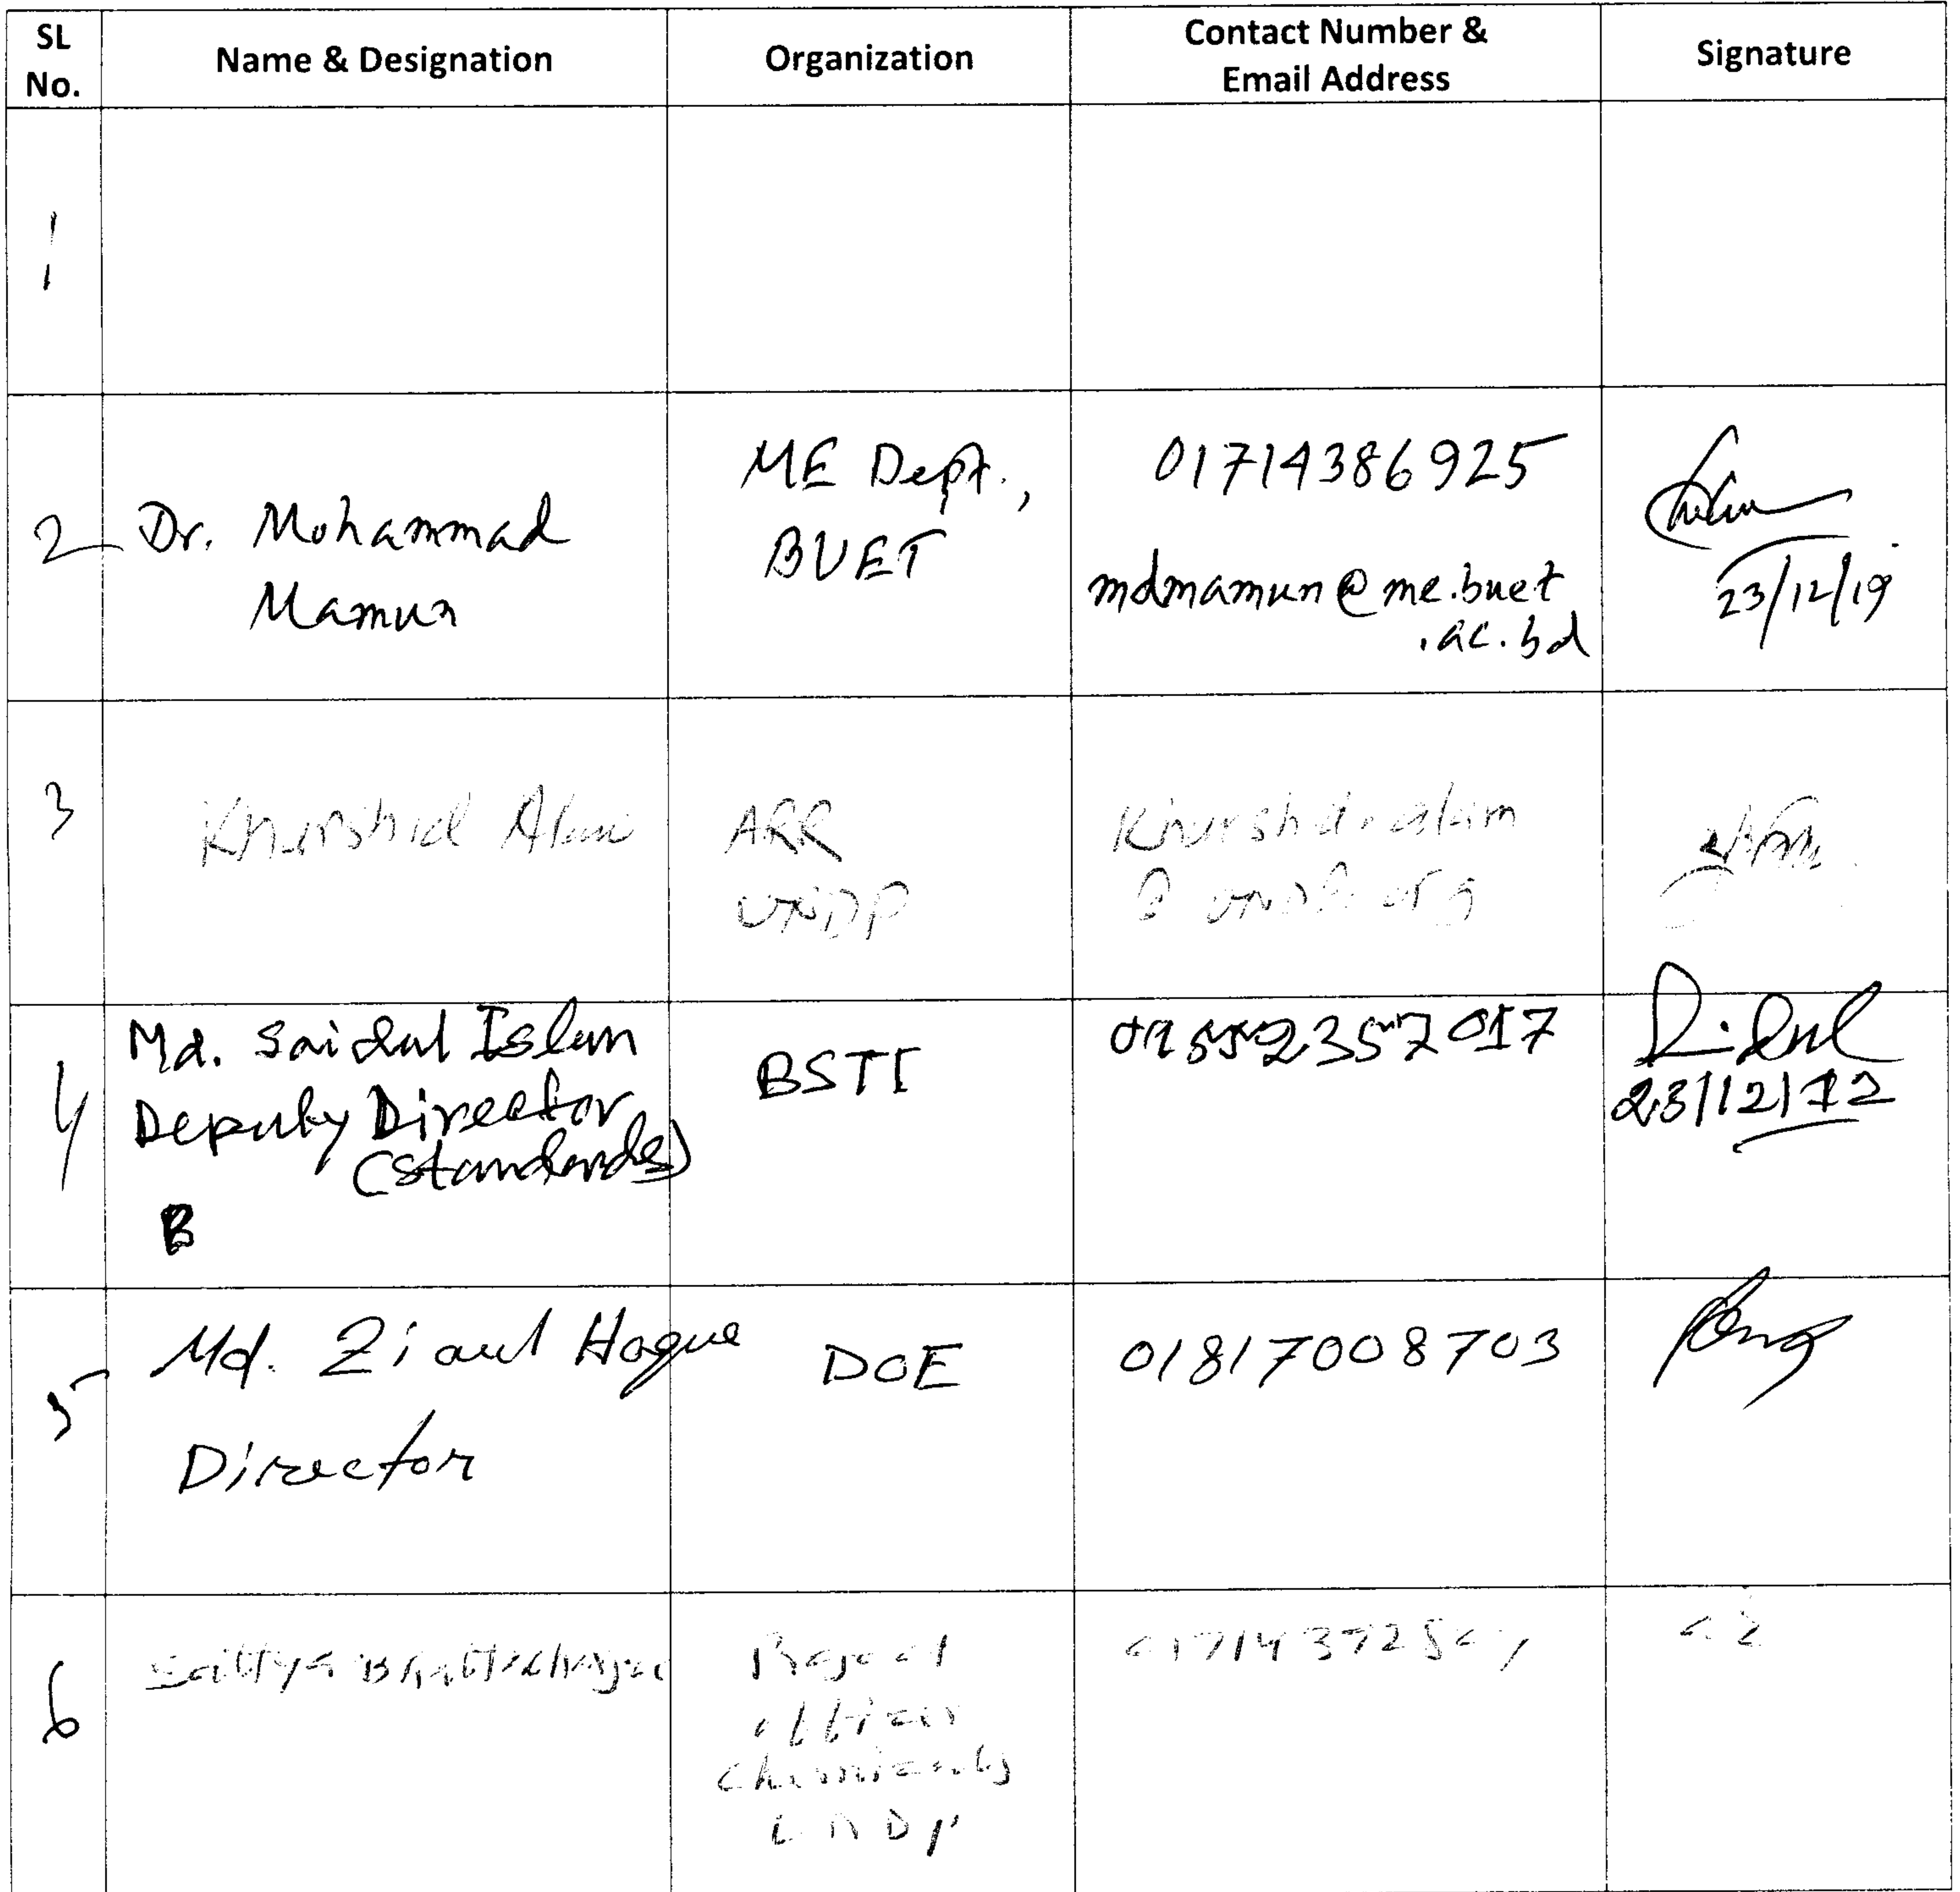 SL No.
Name & Designation
Organization
Contact Number &
Email Address
Signature
1
2
Dr. Mohammad
Mamun
ME Dept.,
BUET
01714386925
mdmamun@me.buet
.ac.bd
23/12/19
3
Khurshid Alam
ARR
UNDP
Khurshid.alam
@undp.org
4
Md. Saidul Islam
Deputy Director
(Standards)
B
BSTI
23/12/
5
Md. Ziaul Haque
Director
DOE
01817008703
6
Project
officer
Chemicals
UNDP